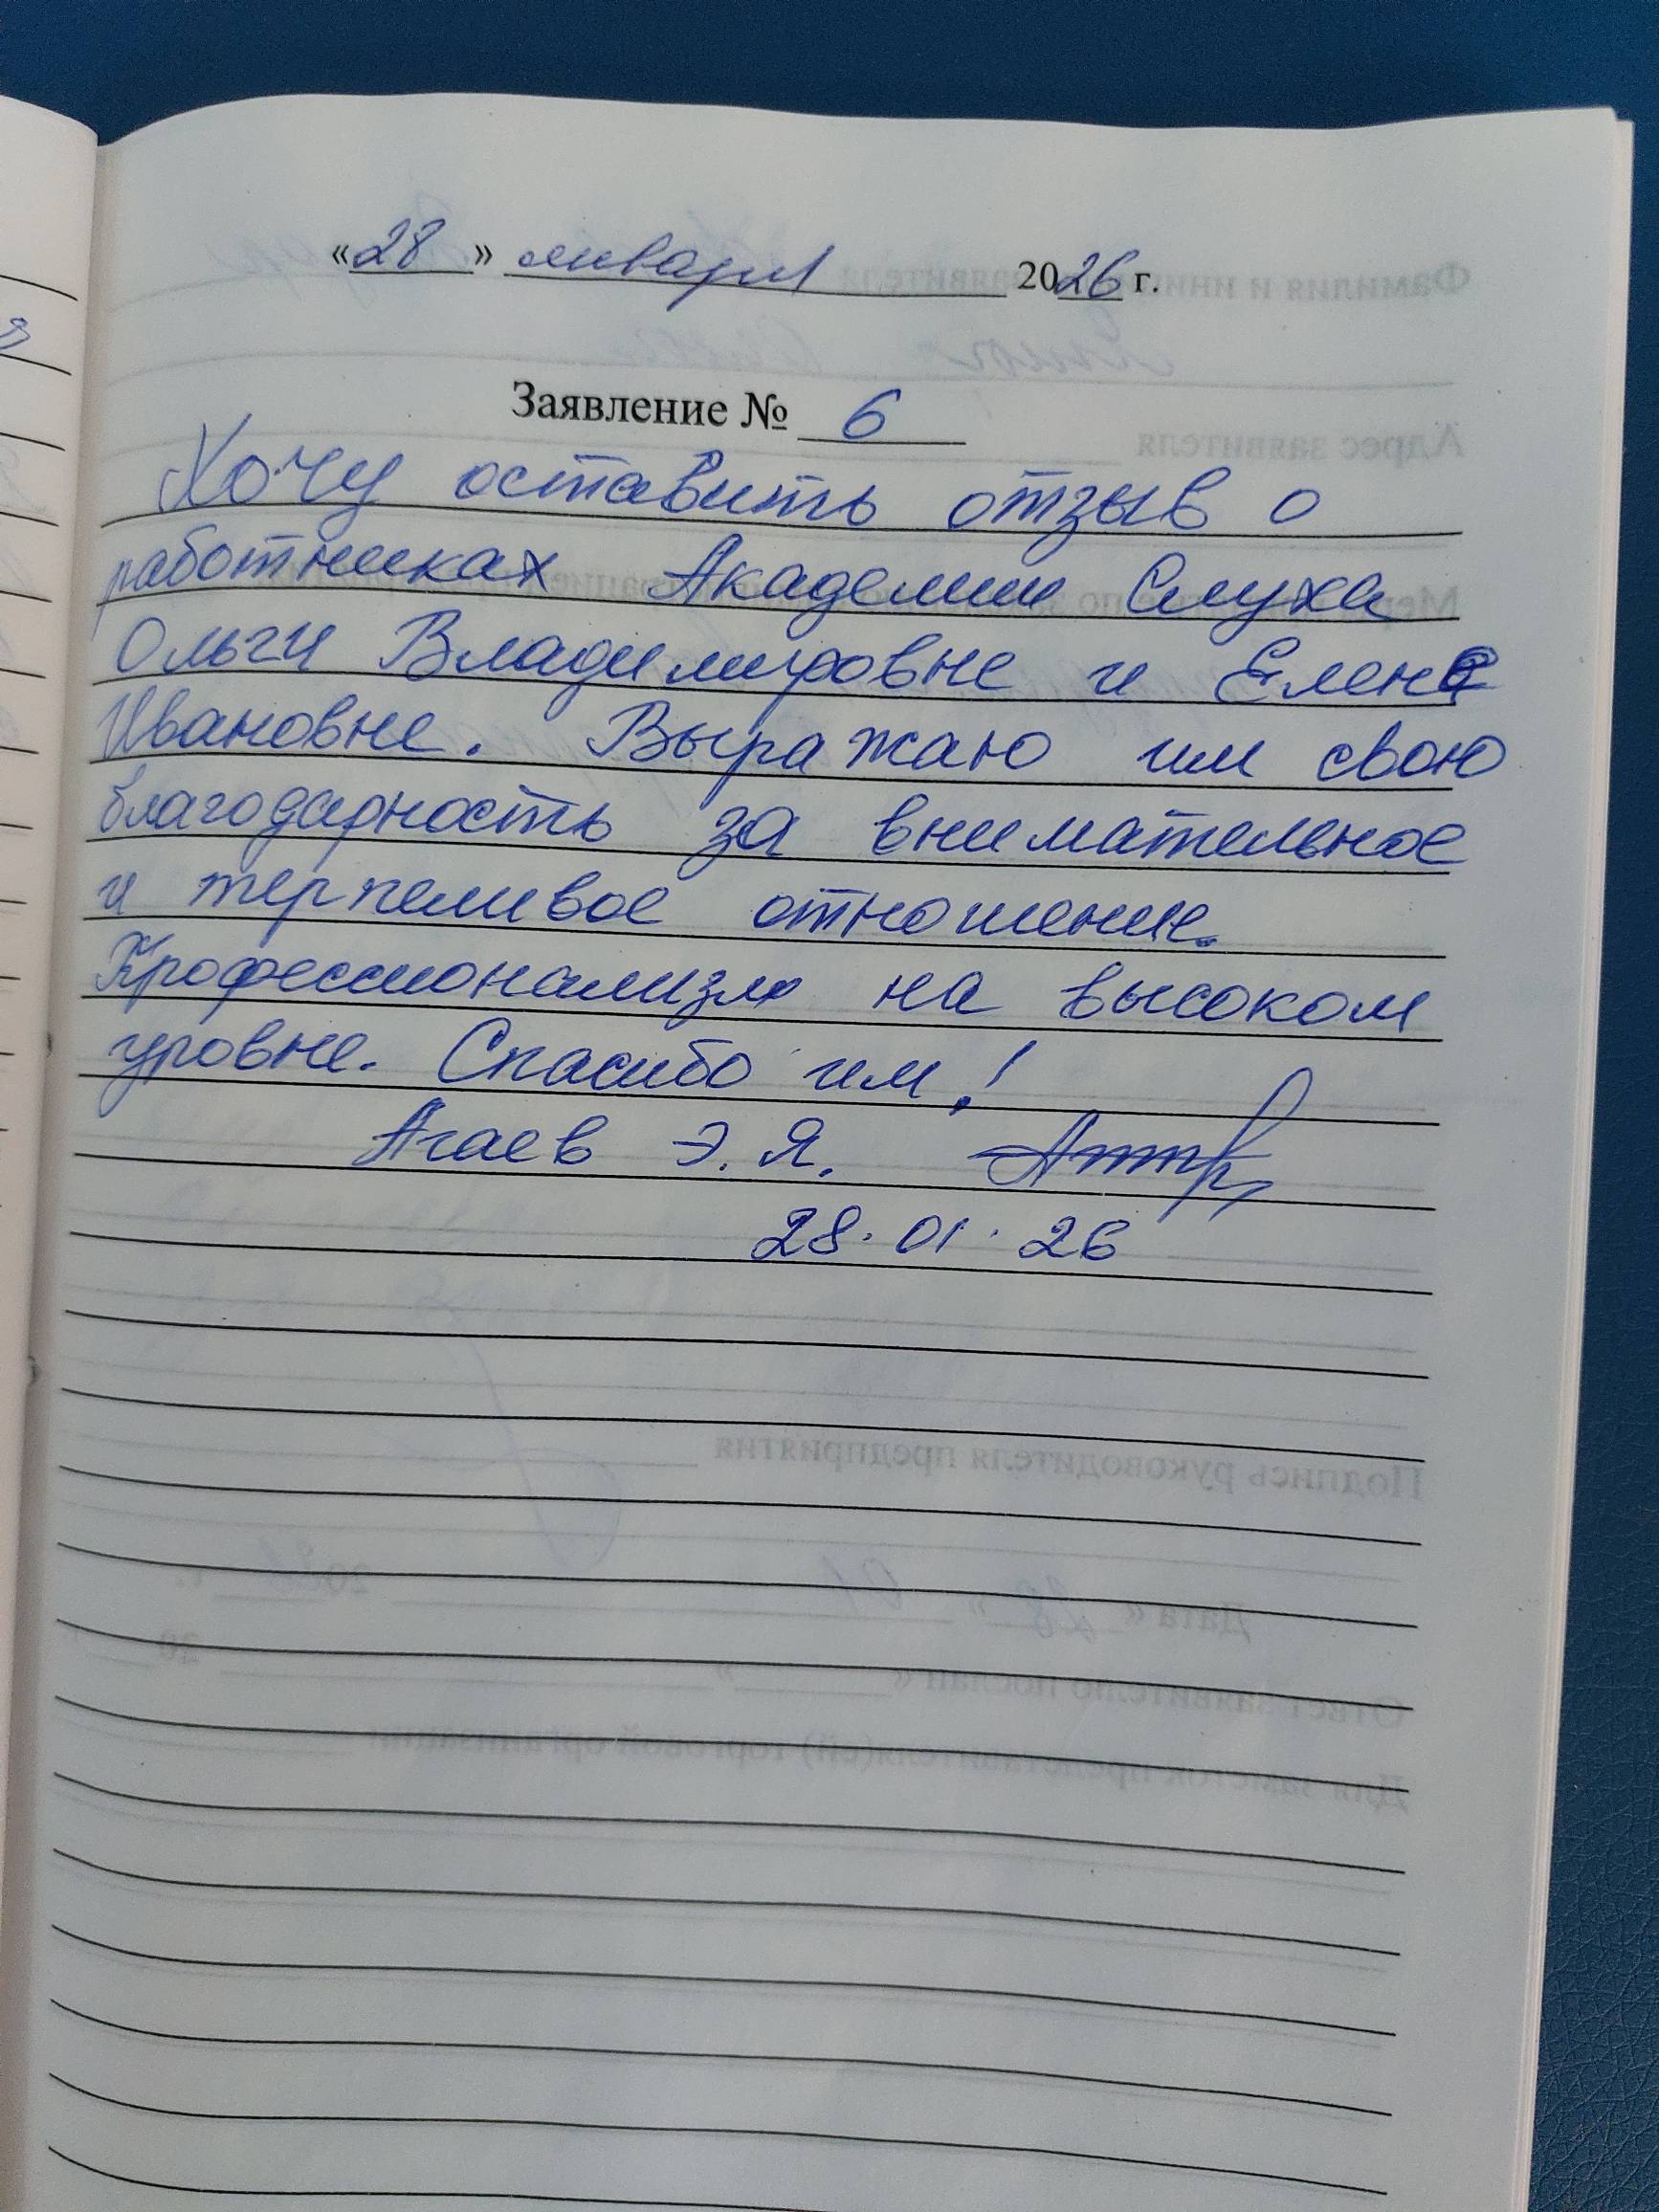 «28» января 2026 г.
Заявление № 6
Хочу оставить отзыв о
работниках Академии Слуха
Ольги Владимировне и Елене
Ивановне. Выражаю им свою
благодарность за внимательное
и терпеливое отношение.
Профессионализм на высоком
уровне. Спасибо им!
Агаев Э. Я.
28. 01. 26